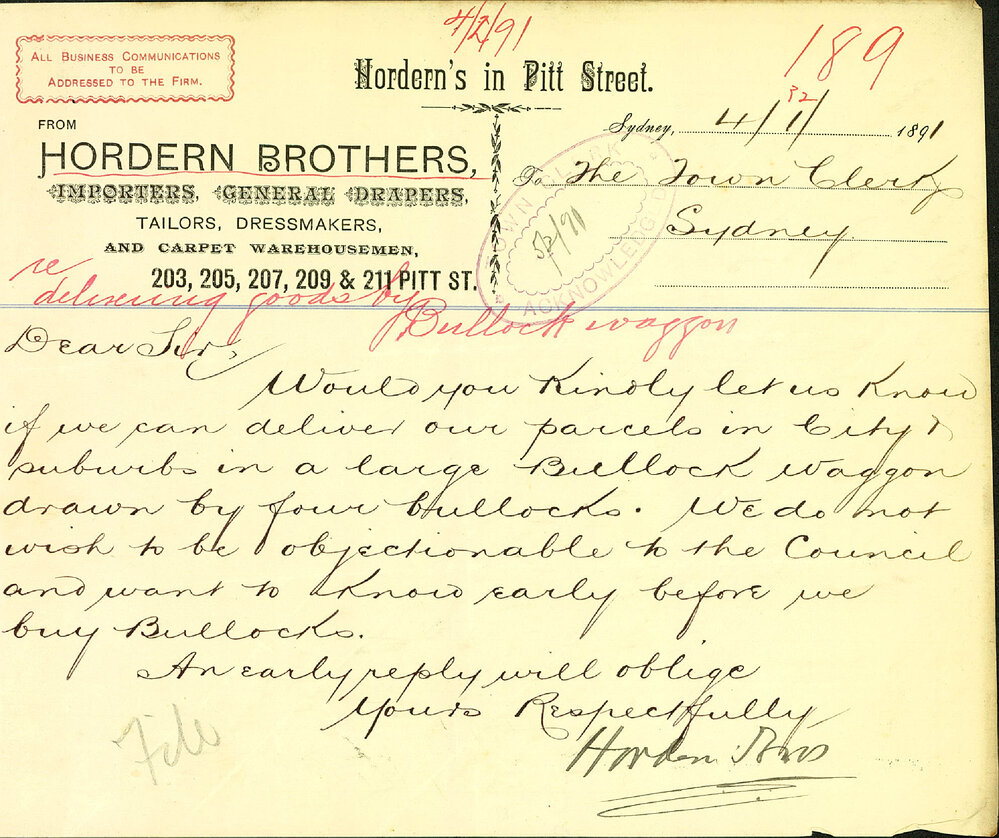 4/2/91
189
ALL BUSINESS COMMUNICATIONS
TO BE
ADDRESSED TO THE FIRM.
Hordern's in Pitt Street.
32
Sydney, 4/1/ 1891
FROM
HORDERN BROTHERS,
IMPORTERS, GENERAL DRAPERS,
TAILORS, DRESSMAKERS,
AND CARPET WAREHOUSEMEN,
203, 205, 207, 209 & 211 PITT ST.
To The Town Clerk
Sydney
TOWN CLERK
ACKNOWLEDGED
re
delivering goods by
Bullock waggon
Dear Sir,
Would you kindly let us know
if we can deliver our parcels in City &
suburbs in a large Bullock waggon
drawn by four bullocks. We do not
wish to be objectionable to the Council
and want to know early before we
buy Bullocks.
An early reply will oblige
Yours Respectfully
Hordern Bros
File